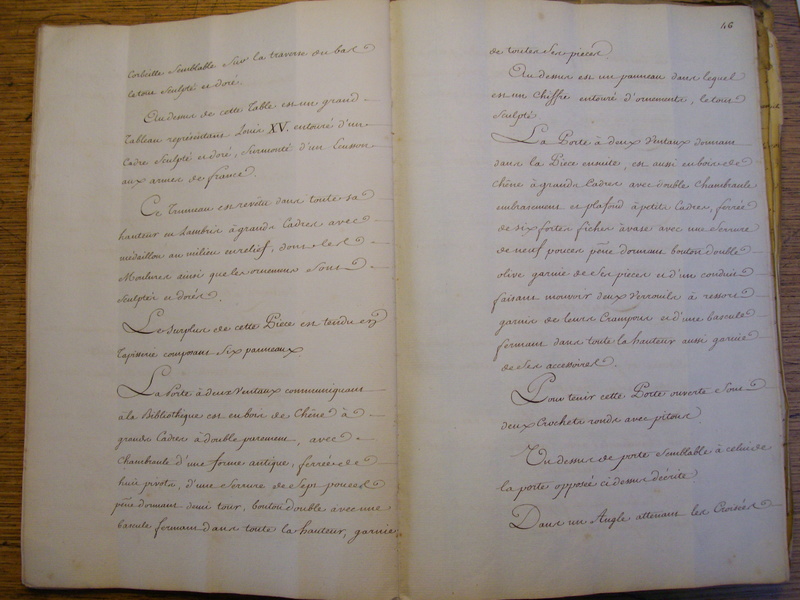 Corbeille Semblable sur la traverse du bas
le tout Sculpté et doré.
Au dessus de cette Table est un grand
Tableau représentant Louis XV. entouré d'un
Cadre Sculpté et doré, Surmonté d'un Ecusson
aux armes de france.
Ce Trumeau est revêtu dans toute sa
hauteur en Lambris à grands Cadres avec
médaillon au milieu en relief, dont les
Moulures ainsi que les ornemens Sont
Sculptés et dorés.
Le Surplus de cette Pièce est tendu en
Tapisserie composant Six panneaux
La Porte à deux Ventaux communiquant
à la Bibliothèque est en bois de Chêne à
grands Cadres à double parement, avec
Chambranle d'une forme antique, ferrée de
huit pivots, d'une Serrure de Sept pouces
pêne dormant demi tour, bouton double avec une
bascule fermant dans toute la hauteur, garnie
46
de toutes Ses pieces.
Au dessus est un panneau dans lequel
est un Chiffre entouré d'ornements, le tout
Sculpté.
La Porte à deux Ventaux donnant
dans la Pièce ensuite, est aussi en bois de
chêne à grands Cadres avec double Chambranle
embrasement et plafond à petits Cadres, ferrée
de six fortes fiches à vase avec une Serrure
de neuf pouces pêne dormant bouton double
olive garnie de Ses pieces et d'un conduit
faisant mouvoir deux Verrouils à ressort
garnis de leurs Crampons et d'une bascule
fermant dans toute la hauteur aussi garnie
de Ses accessoires.
Pour tenir cette Porte ouverte Sont
deux Crochets ronds avec pitons.
Un dessus de porte Semblable à celui de
la porte opposé ci dessus décrite.
Dans un Angle attenant les Croisées